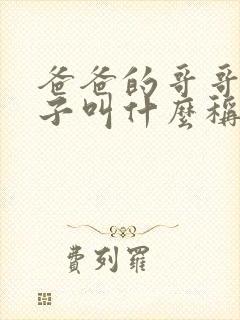 爸爸的哥哥
子叫什麼稱
費列羅